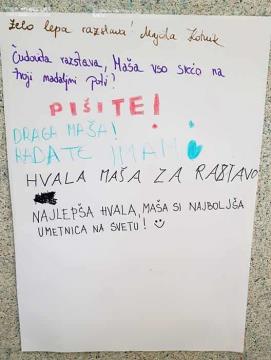 Zelo lepa razstava! Mojda Zotnik
Čudovita razstava, Maša vso srečo na
tvoji nadaljni poti!
PIŠITE!
DRAGA MAŠA!
RADA TE IMAM
HVALA MAŠA ZA RABTAVO
NAJLEPŠA HVALA, MAŠA SI NAJBOLJŠA
UMETNICA NA SVETU!